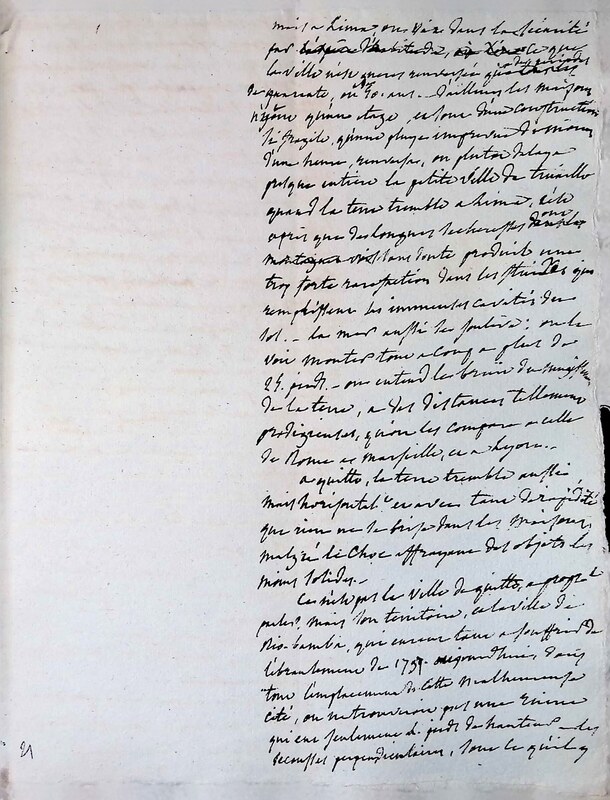 mais a Lima, on vit dans la sécurité
par l'espèce d'habitude, ce que
la ville n'est gueres renversée que
de quarante, ou 50. ans. D'ailleurs les maisons
n'ayant qu'un etage, et sont d'une construction
si fragile, qu'une pluye imprevue de moins
d'une heure, renversa, ou plutot delaya
presque entiere la petite ville de truxillo
quand la terre tremble a Lima, c'est
après que de longues secheresses
sans doute produit une
trop forte rarefaction dans les fluides qui
remplissent les immenses cavités du
sol. - la mer aussi se souleve: on la
voit monter tout a coup a plus de
25. pieds. - on entend le bruit du mugissement
de la terre, a des distances tellement
prodigieuses, qu'on les compare a celle
de Rome a Marseille, et a Lyon. -
a quitto, la terre tremble aussi
mais horisontal.t et avec tant de rapidité
que rien ne se brise dans les maisons,
malgré le choc effrayant des objets les
moins solides. -
Ce n'est pas la ville de quitto, a propt
parler, mais son territoire, et la ville de
Rio-bamba, qui eurent tant a souffrir de
l'ébranlement de 179 aujourdhui, dans
tout l'emplacement de cette malheureuse
cité, on ne trouveroit pas une
qui eut seulement 2. pieds de hauteur - les
secousses perpendiculaires, sont ce qu'il y
21